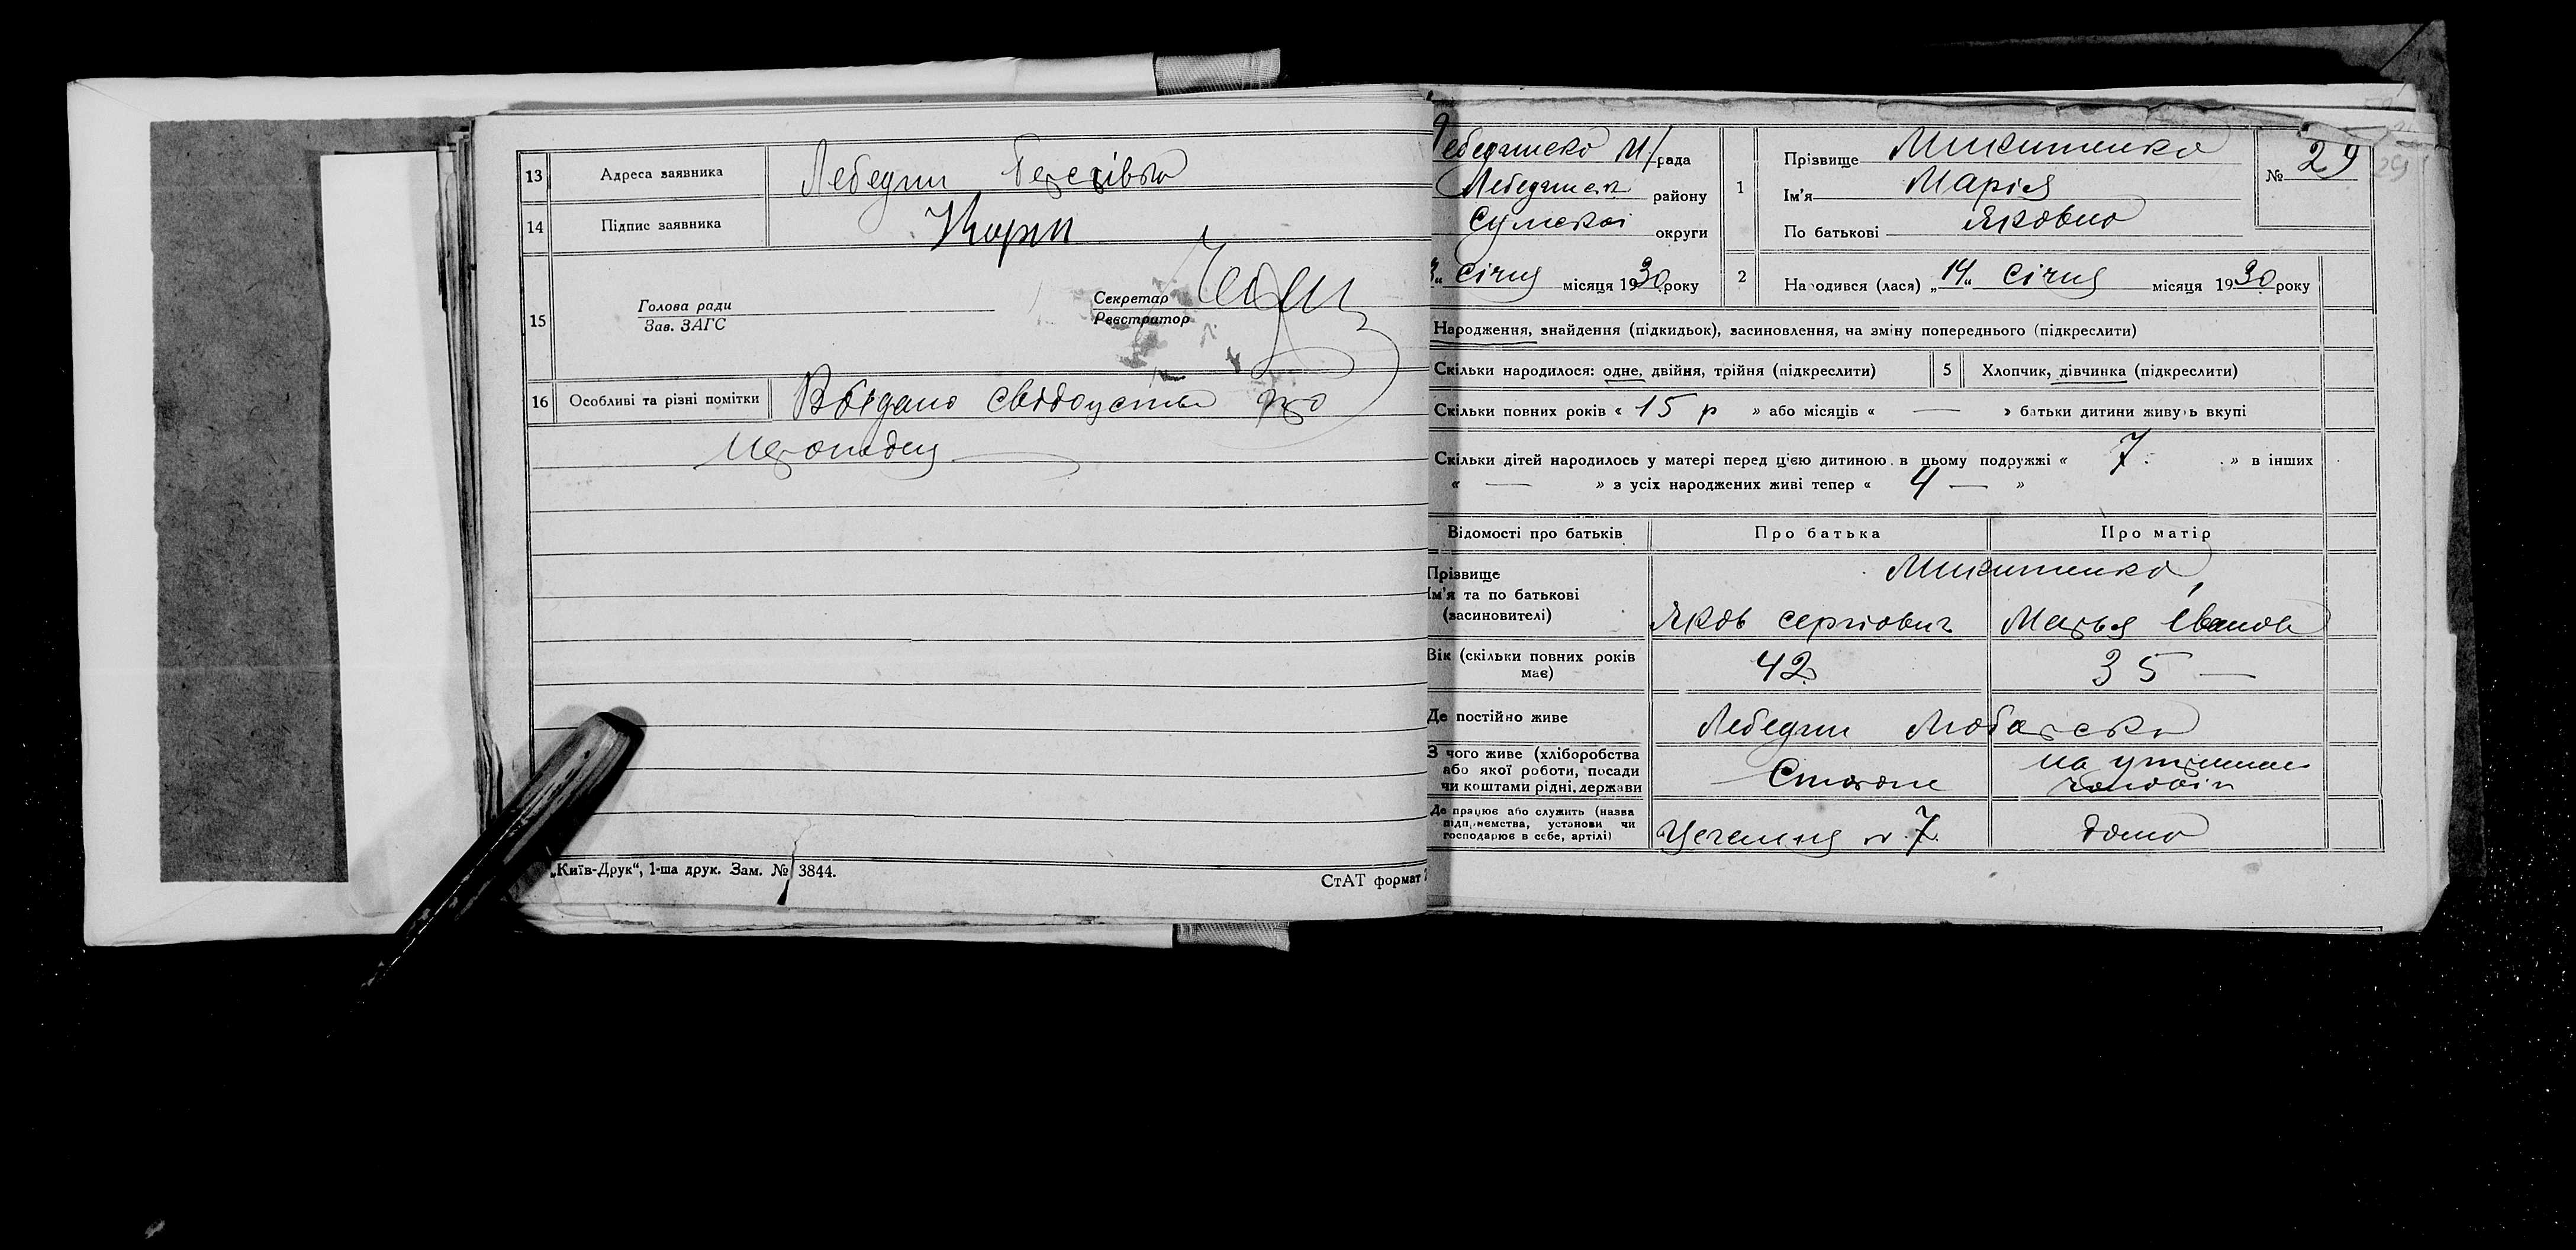 13 Адреса заявника Лебедин
14 Підпис заявника
15 Голова ради
Зав. ЗАГС
Секретар
Реєстратор
16 Особливі та різні помітки Видано свідоцтво про
народження
„Київ-Друк“, 1-ша друк. Зам. № 3844.
СтАТ формат
Лебединсько М/рада
Лебединськ району
Сумської округи
січня місяця 1930 року
1 Прізвище Микитенко
Ім'я Марія
По батькові Яковна
№ 29
2 Народився (лася) „14“ січня місяця 1930 року
Народження, знайдення (підкидьок), васиновлення, на зміну попереднього (підкреслити)
Скільки народилося: одне, двійня, трійня (підкреслити) 5 Хлопчик, дівчинка (підкреслити)
Скільки повних років « 15 р » або місяців « — » батьки дитини живуть вкупі
Скільки дітей народилось у матері перед цією дитиною в цьому подружжі « 7 » в інших
« — » з усіх народжених живі тепер « 4 — »
Відомості про батьків Про батька Про матір
Прізвище Микитенко
Ім'я та по батькові
(васиновителі) Яков Сергіович Марья Іванов
Вік (скільки повних років має) 42 35 —
Де постійно живе Лебедин
З чого живе (хліборобства
або якої роботи, посади
чи коштами рідні, держави Сторож на утриман
чоловік
Де працює або служить (назва
підприємства, установи чи
господарює в себе, артілі) № 7 дома